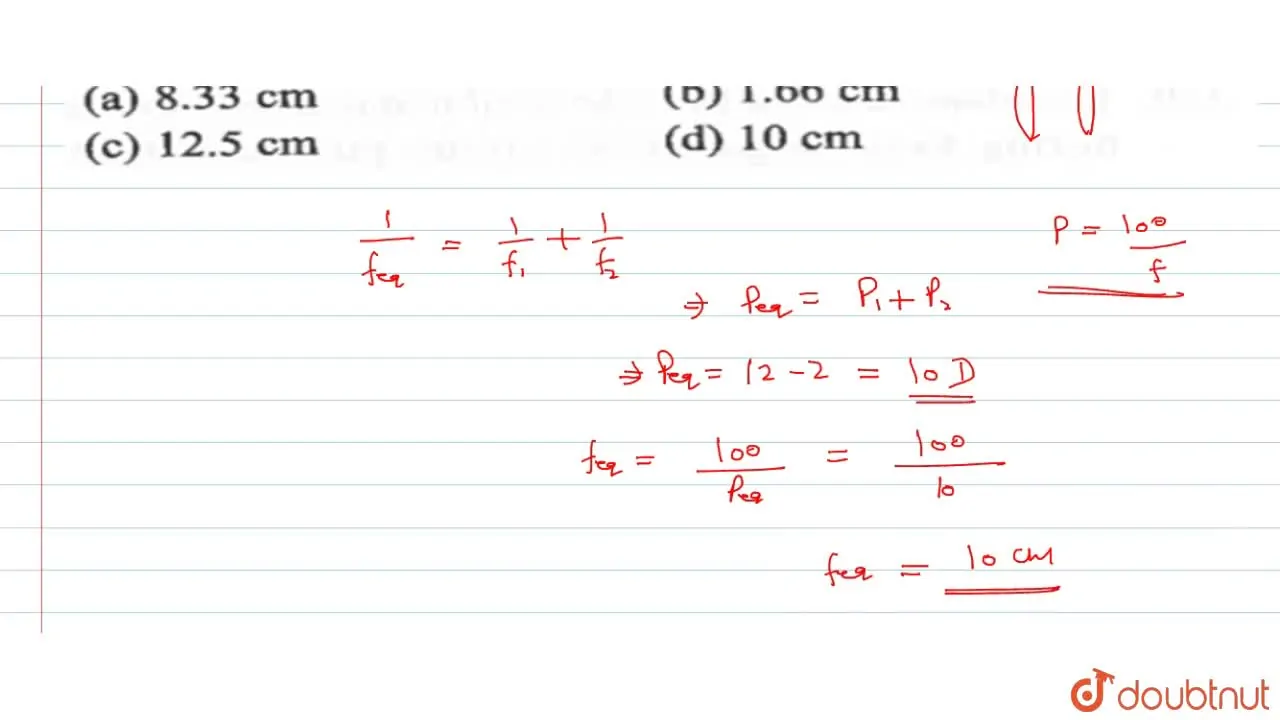 (a) 8.33 cm (b) 1.66 cm
(c) 12.5 cm (d) 10 cm
1/feq = 1/f₁ + 1/f₂
P = 100/f
⇒ Peq = P₁ + P₂
⇒ Peq = 12 - 2 = 10 D
feq = 100/Peq = 100/10
feq = 10 cm
doubtnut